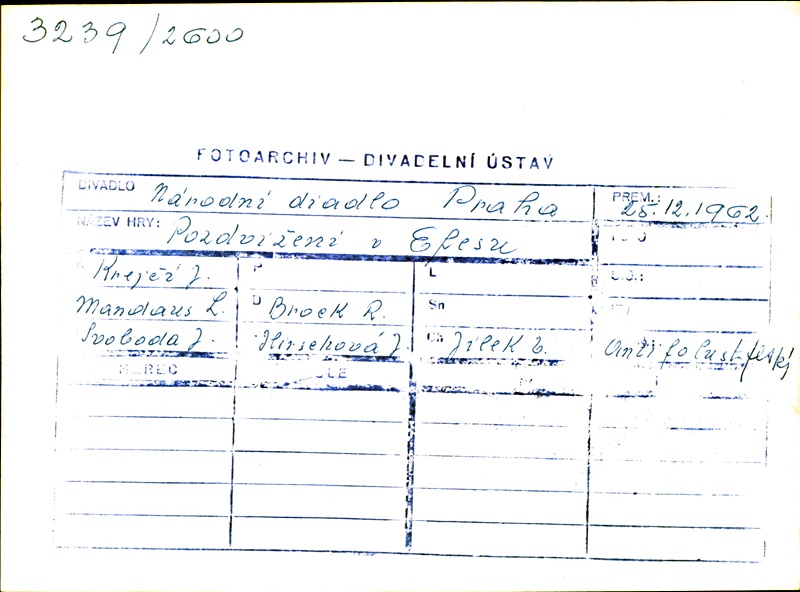 3239/2600
FOTOARCHIV — DIVADELNÍ ÚSTAV
DIVADLO Národní divadlo Praha PREM.: 25.12.1962.
NÁZEV HRY: Pozdvižení v Efesu
Krejčí J. P L
Mandaus L. D Brock R. Sn
Svoboda J. Hirschová J. Ch Jílek V.
HEREC